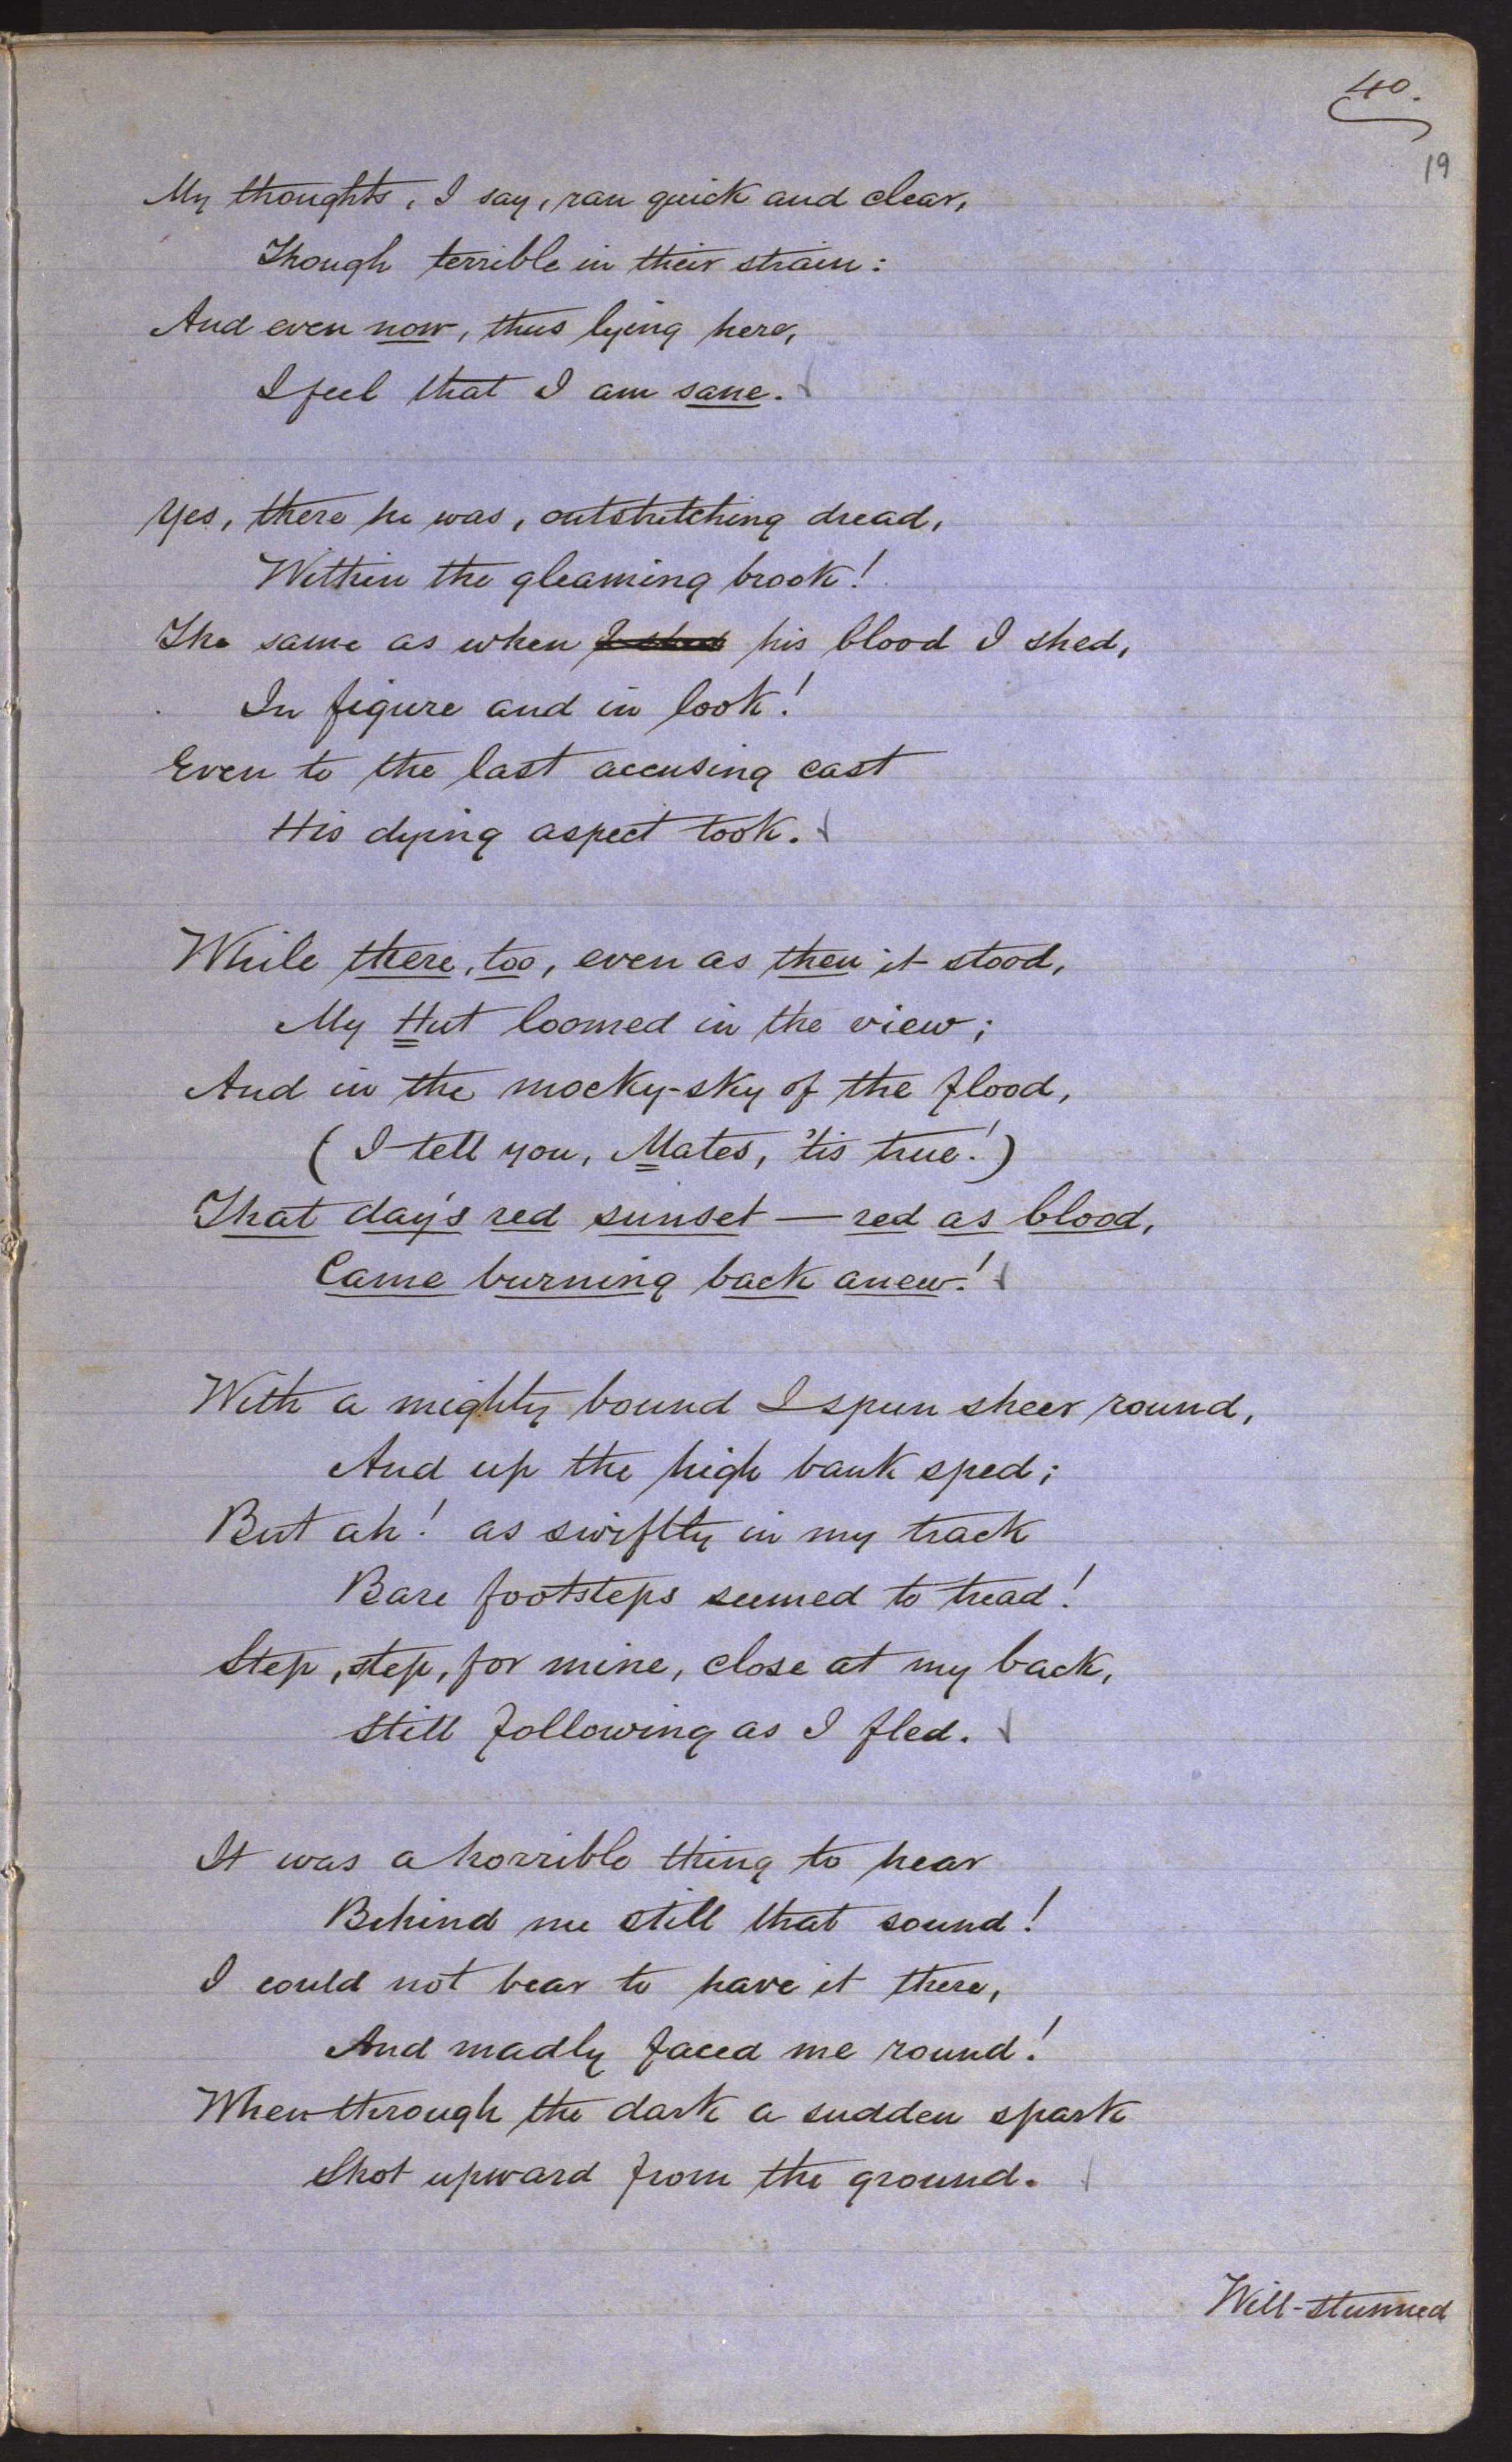 40.
19
My thoughts, I say, ran quick and clear,
Though terrible in their strain:
And even now, thus lying here,
I feel that I am sane.
Yes, there he was, outstretching dread,
Within the gleaming brook!
The same as when I shed his blood I shed,
In figure and in look!
Even to the last accusing cast
His dying aspect took.
While there, too, even as then it stood,
My Hut loomed in the view;
And in the mocky-sky of the flood,
(I tell you, Mates, 'tis true!)
That day's red sunset — red as blood,
Came burning back anew!
With a mighty bound I spun sheer round,
And up the high bank sped;
But ah! as swiftly in my track
Bare footsteps seemed to tread!
Step, step, for mine, close at my back,
Still following as I fled.
It was a horrible thing to hear
Behind me still that sound!
I could not bear to have it there,
And madly faced me round!
When through the dark a sudden spark
Shot upward from the ground.
Will-stunned